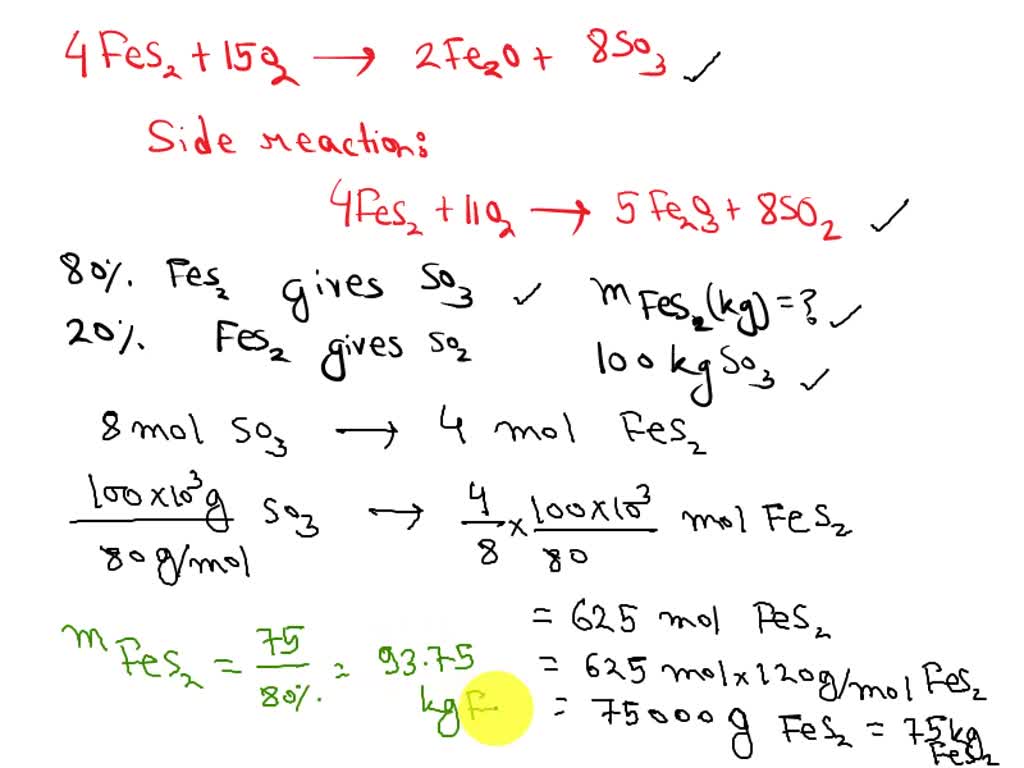 4FeS₂ + 15O₂ → 2Fe₂O + 8SO₃ ✓
Side reaction:
4FeS₂ + 11O₂ → 5Fe₂O₃ + 8SO₂ ✓
80%. FeS₂ gives SO₃ ✓
20%. FeS₂ gives SO₂
m FeS₂(kg) = ? ✓
100 kg SO₃ ✓
8 mol SO₃ → 4 mol FeS₂
100×10³g / 80g/mol SO₃ → 4/8 × 100×10³/80 mol FeS₂
= 625 mol FeS₂
= 625 mol×120g/mol FeS₂
= 75000g FeS₂ = 75kg FeS₂
m FeS₂ = 75/80%. = 93.75
kg F